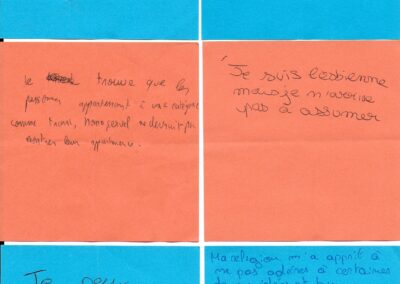 le trouve que les
personnes appartenant à une catégorie
comme trans, homosexuel ne devrait pas
montrer leur appartenance.
Je suis lesbienne
mais je n'arrive
pas à assumer
Je
Ma religion m'a apprit à
me pas adérer à certaines